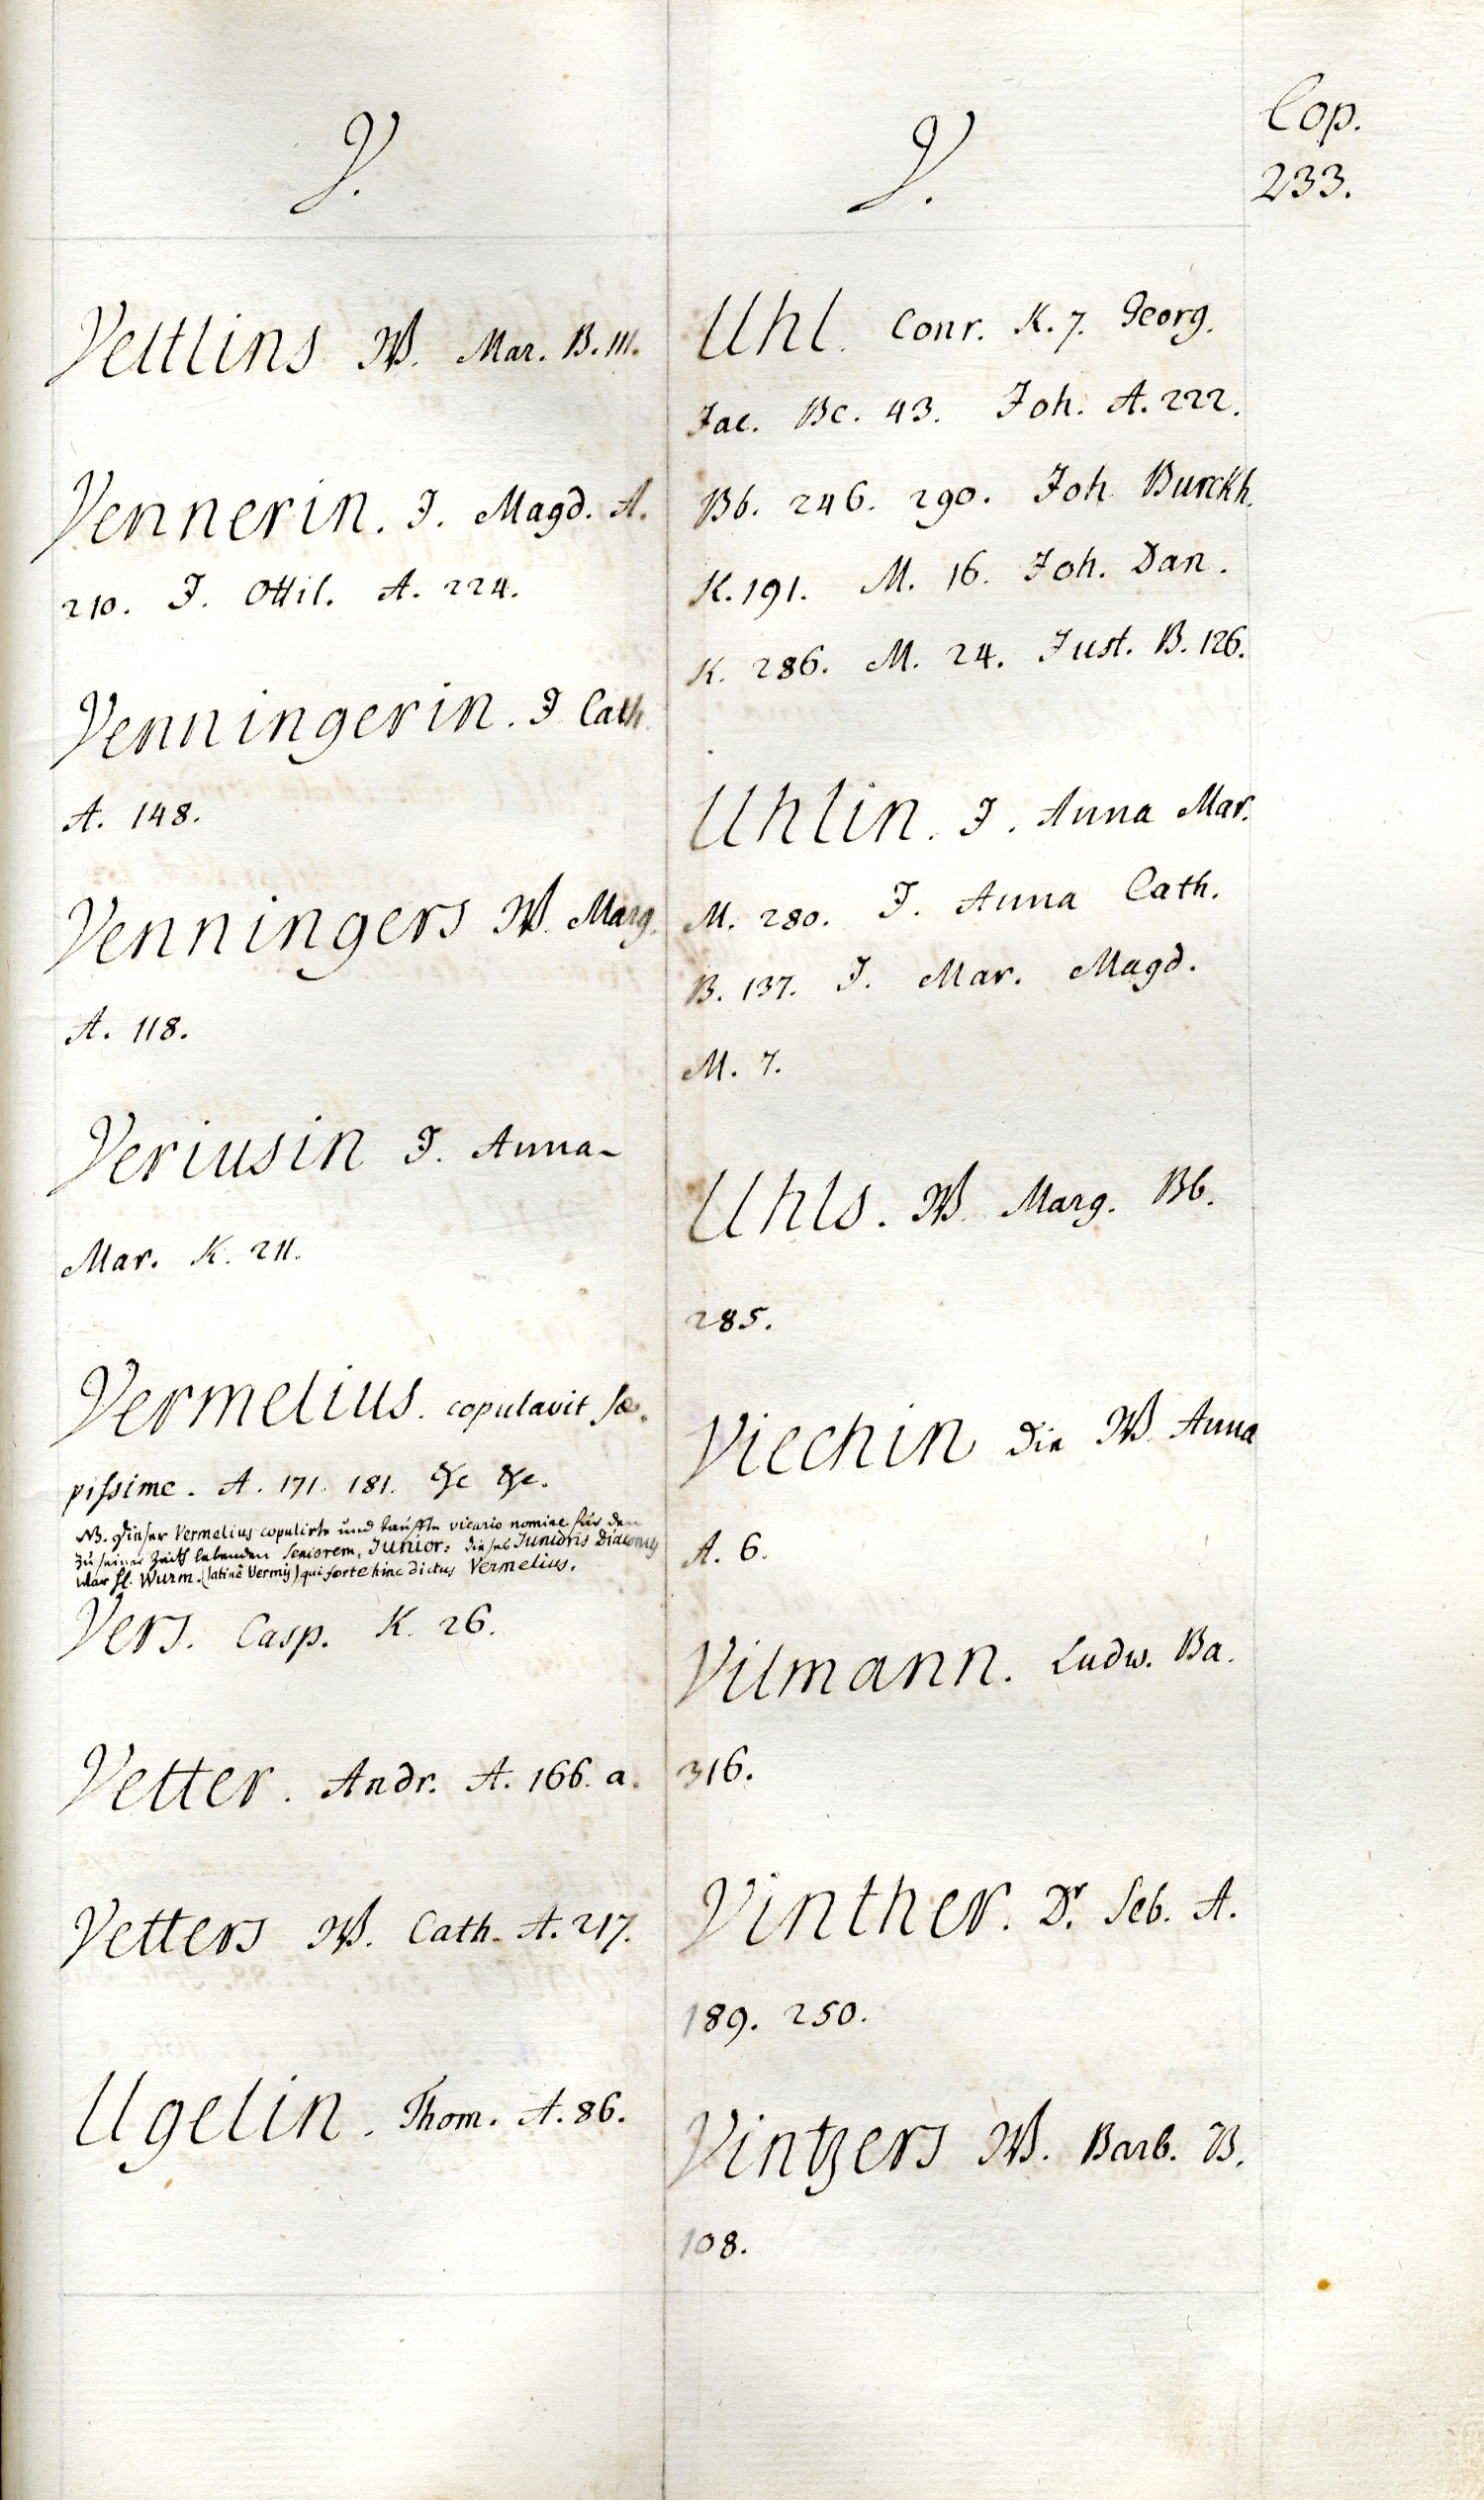 V.
Veltlins W. Mar. B. 111.
Vennerin. J. Magd. A.
210. J. Ottil. A. 224.
Venningerin. J Cath.
A. 148.
Venningers W. Marg.
A. 118.
Veriusin J. Anna
Mar. K. 211.
Vermelius. copulavit sæ-
pissime. A. 171. 181. &c &c.
NB. dieser Vermelius copulirte und tauffte vicario nomine für den
zu seiner Zeith lebenden Seniorem, Junior: dieses Junioris Diaconus
war H. Wurm. (latinè Vermis) qui forte hinc dictus Vermelius.
Vers. Casp. K. 26.
Vetter. Andr. A. 166. a.
Vetters W. Cath. A. 217.
Ugelin. Thom. A. 86.
V.
Uhl. Conr. K. 7. Georg.
Jac. Bc. 43. Joh. A. 222.
Bb. 246. 290. Joh Burckh.
K. 191. M. 16. Joh. Dan.
K. 286. M. 24. Just. B. 126.
Uhlin. J. Anna Mar.
M. 280. J. Anna Cath.
B. 137. J. Mar. Magd.
M. 7.
Uhls. W. Marg. Bb.
285.
Viechin die W. Anna
A. 6.
Vilmann. Ludw. Ba.
316.
Vinther. Dr. Seb. A.
189. 250.
Vintzers W. Barb. B.
108.
Cop.
233.